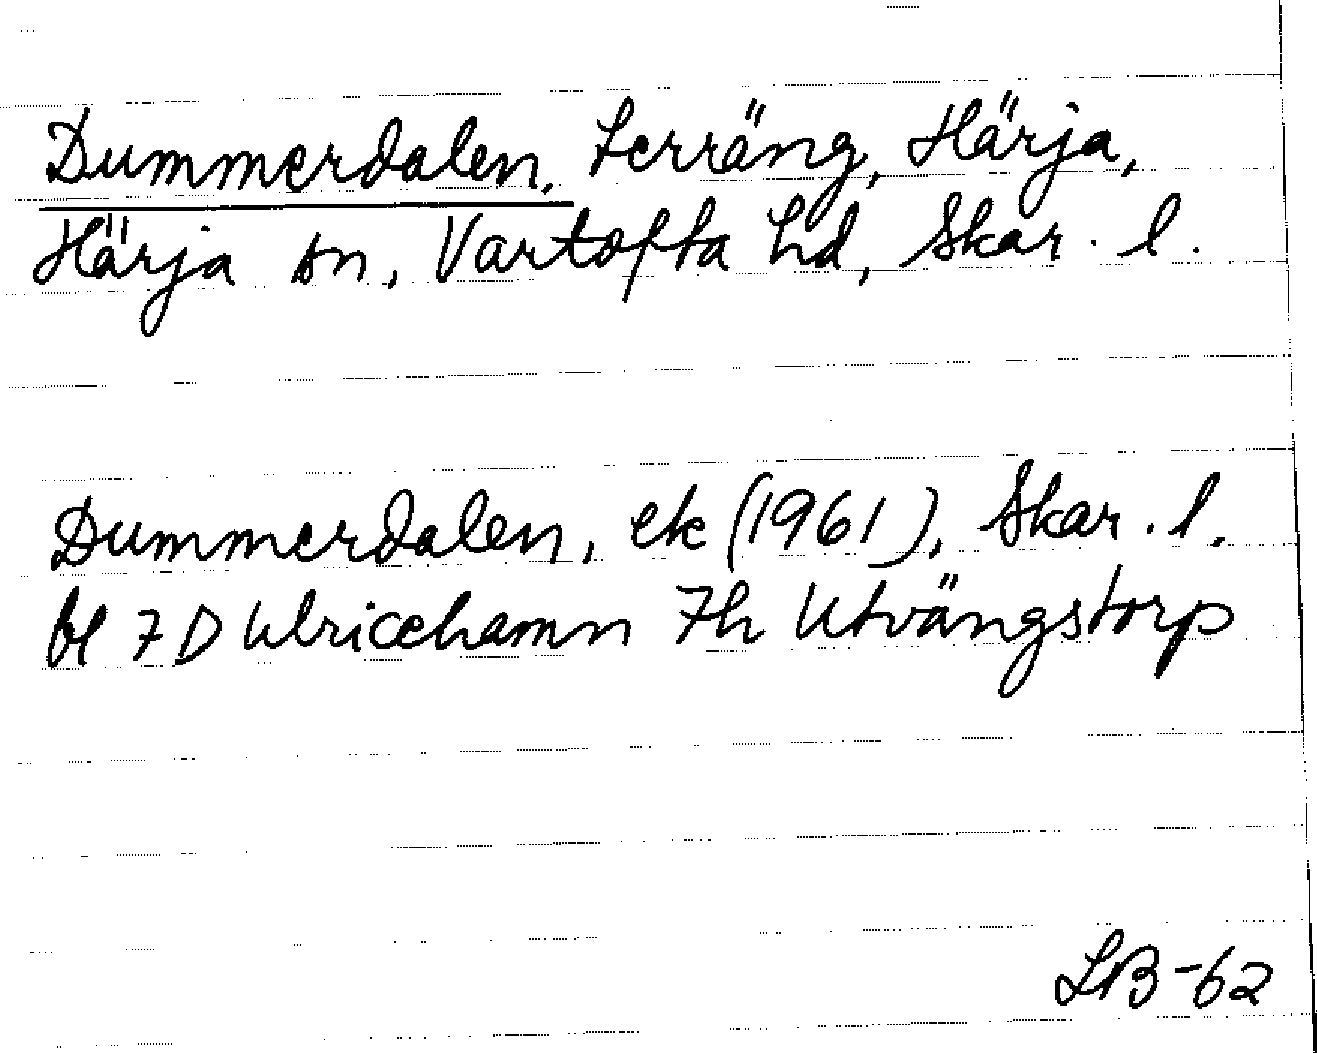 Dummerdalen, terräng, Härja,
Härja sn, Vartofta hd, Skar. l.
Dummerdalen, ek (1961), Skar. l.
bl 7 D Ulricehamn 7h Utvängstorp
LB-62